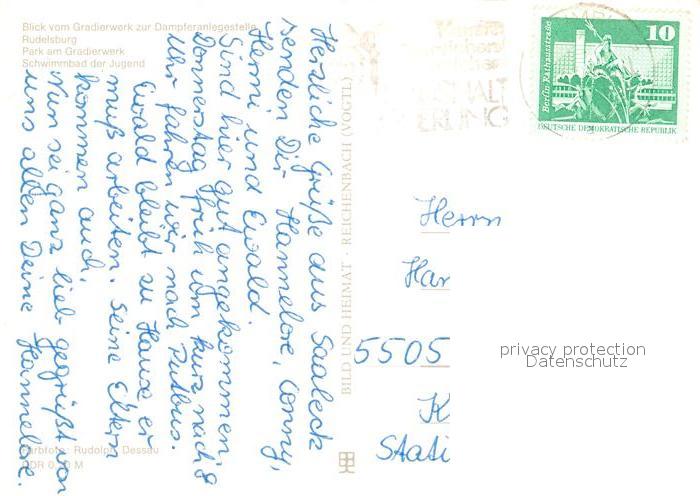 Blick vom Gradierwerk zur Dampferanlegestelle
Rudelsburg
Park am Gradierwerk
Schwimmbad der Jugend
Herzliche Grüße aus Saaleck
senden Dir Hannelore, Conny,
Henni und Ewald.
Sind hier gut angekommen.
Donnerstag früh um kurz nach 8
Uhr fahren wir nach Putbus.
Ewald bleibt zu Hause er
muß arbeiten. Seine Eltern
kommen auch.
Nun sei ganz lieb gegrüßt von
uns allen Deine Hannelore.
Farbfoto: Rudolph, Dessau
BILD UND HEIMAT · REICHENBACH (VOGTL)
10
Berlin, Rathausstraße
DEUTSCHE DEMOKRATISCHE REPUBLIK
Herrn
Har
5505
K
Stati
privacy protection
Datenschutz